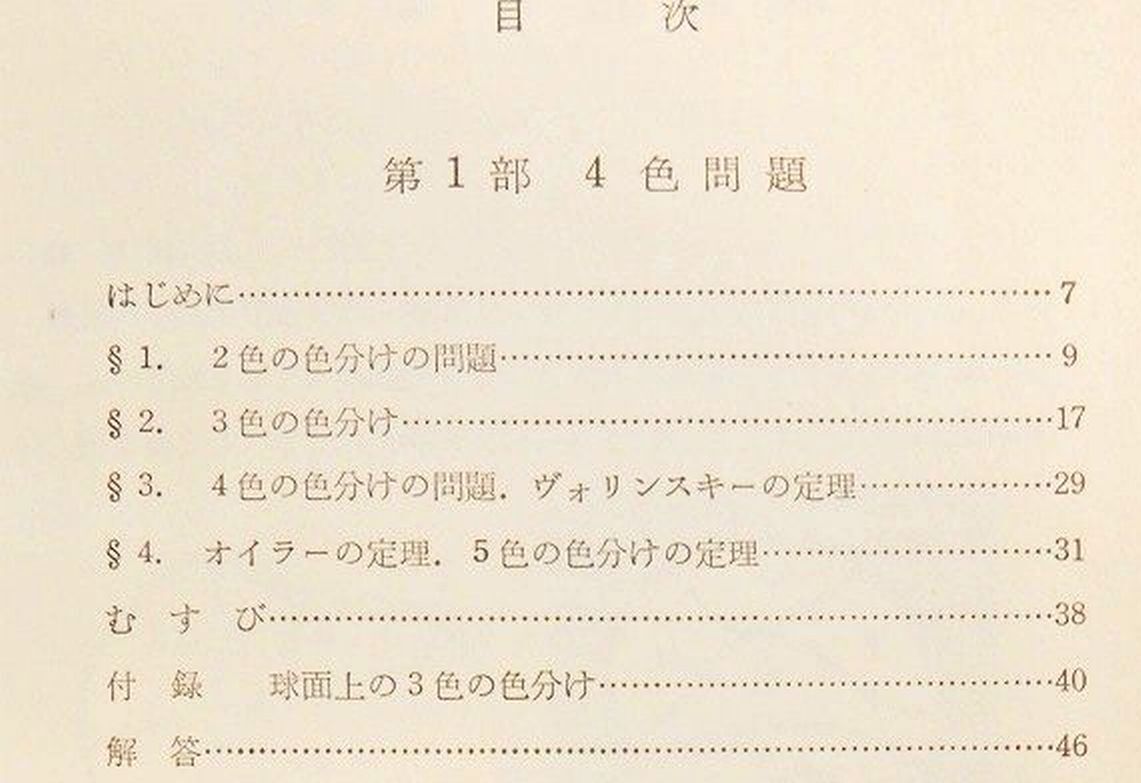 目 次
第1部 4色問題
はじめに……7
§1. 2色の色分けの問題……9
§2. 3色の色分け……17
§3. 4色の色分けの問題. ヴォリンスキーの定理……29
§4. オイラーの定理. 5色の色分けの定理……31
むすび……38
付録 球面上の3色の色分け……40
解答……46